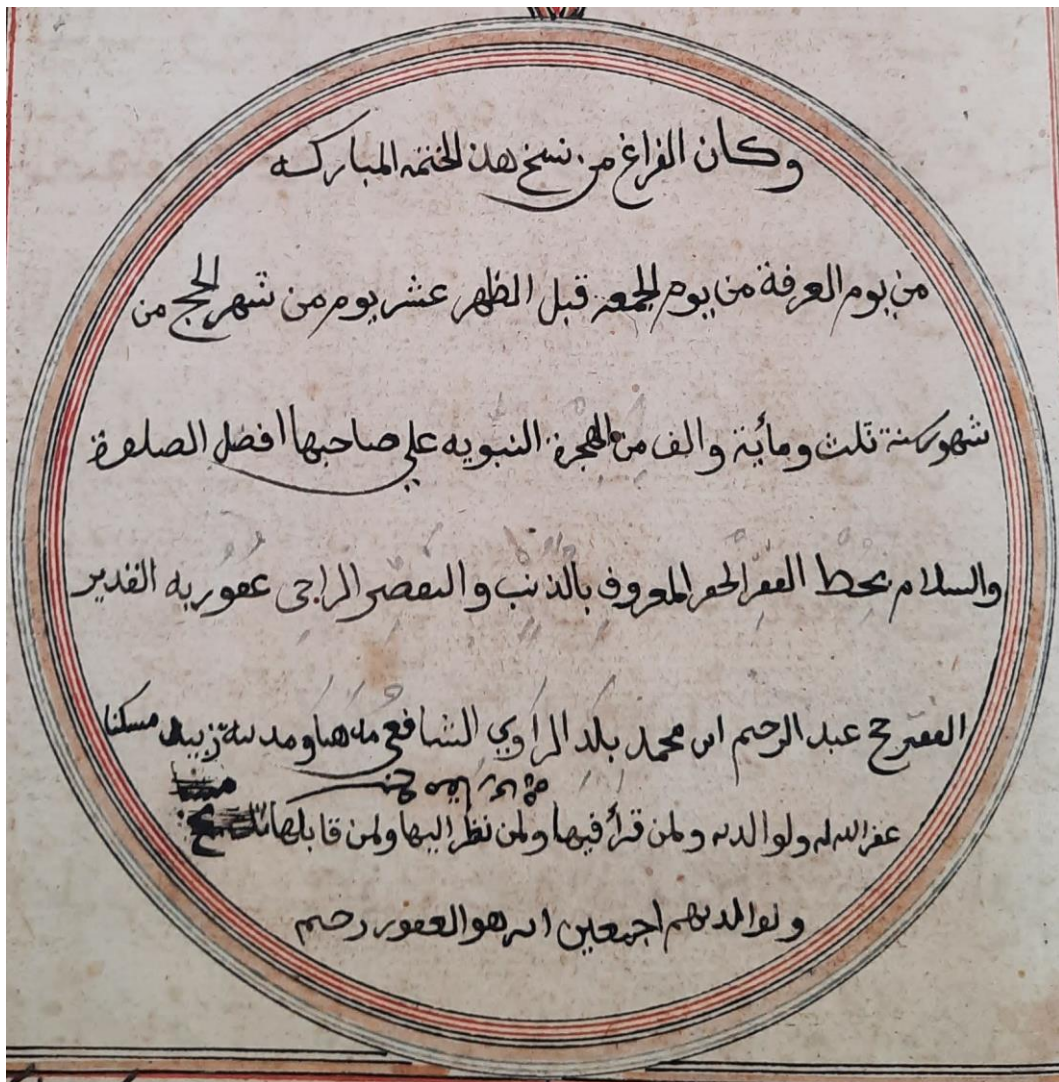 وكان الفراغ من نسخ هذه الختمه المباركه
من يوم العرفة من يوم الجمعه قبل الظهر عشر يوم من شهر الحج من
شهور سنة ثلث ومأية والف من الهجرة النبويه على صاحبها افضل الصلوة
والسلام بخط الفقير الحقير المعروف بالذنب والتقصير الراجى عفو ربه القدير
الفقير حج عبد الرحيم ابن محمد بلد الراوي الشافعي مذهبا ومدينة زبيد مسكنا
غفر الله له ولوالديه ولمن قرأ فيها ولمن نظر اليها ولمن قابلها
ولوالديهم اجمعين انه هو الغفور رحيم